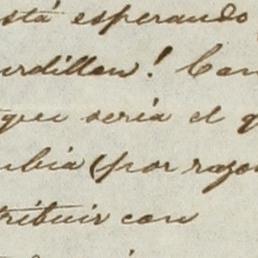 está esperando
urdillon! Can
que seria el q
mbia (por razo
tribuir con